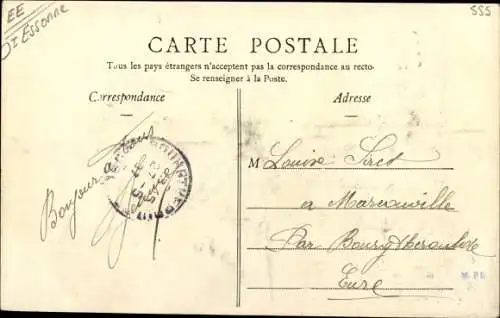 EE
ST ESSONNE
SSS
CARTE POSTALE
Tous les pays étrangers n'acceptent pas la correspondance au recto-
Se renseigner à la Poste.
Correspondance
Adresse
Bonjour a tous
M Louise Siret
a Marcouville
Par Bourgtheroulde
Eure